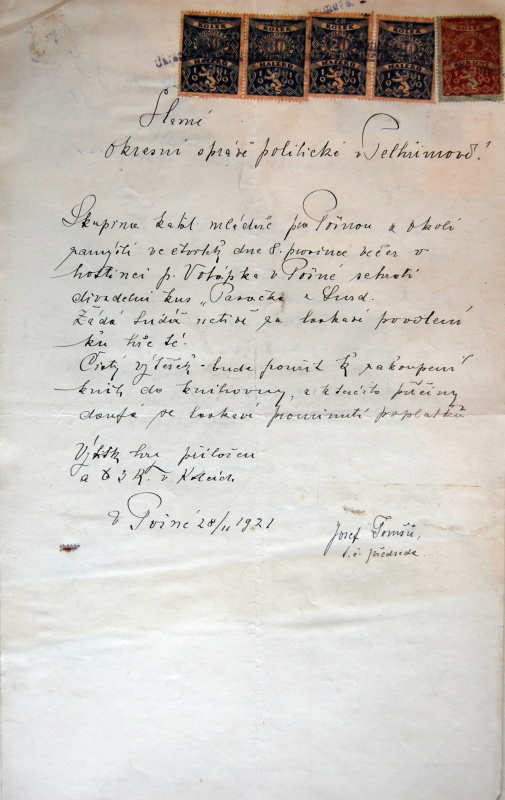 KOLEK KOLEK KOLEK KOLEK KOLEK
30 20 2
HALÉŘŮ HALÉŘŮ HALÉŘŮ HALÉŘŮ KORUNY
1919 1919 1919 1919 1919
Slavné
okresní správě politické v Pelhřimově!
Skupina kath. mládeže pro Pošnou a okolí
zamýšlí ve čtvrtek dne 8. prosince večer v
hostinci p. Votápka v Pošné sehráti
divadelní kus „Pasačka z Lurd.
Žádá tudíž uctivě za laskavé povolení
ku hře té.
Čistý výtěžek bude použit k zakoupení
knih do knihovny, a z tého příčiny
doufá ve laskavé prominutí poplatků
Výtisk hry přiložen
a 3 K. v Kolcích
V Pošné 28/11 1921
Josef Tomšů,
t. č. předseda.